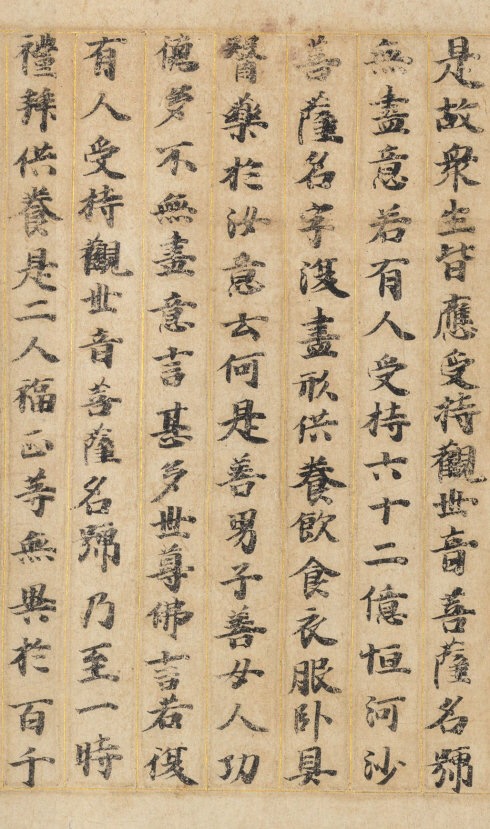 是故衆生皆應受持觀世音菩薩名號
無盡意若有人受持六十二億恒河沙
菩薩名字復盡形供養飲食衣服卧具
醫藥於汝意云何是善男子善女人功
德多不無盡意言甚多世尊佛言若復
有人受持觀世音菩薩名號乃至一時
禮拜供養是二人福正等無異於百千